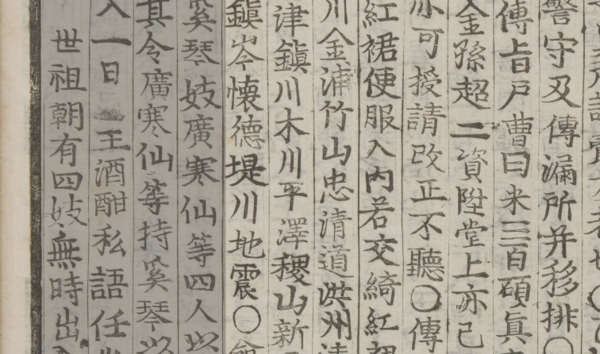 警守及傳漏所并移排○
傳旨戶曹曰米三百碩眞
金孫超二資陞堂上亦已
亦可授請改正不聽○傳
紅裙便服入內若交綺紅
川金浦竹山忠清道洪州清
津鎭川木川平澤稷山新
鎭岑懷德堤川地震○
奚琴妓廣寒仙等四人以
其令廣寒仙等持奚琴以
入一日王酒酣私語任
世祖朝有四妓無時出